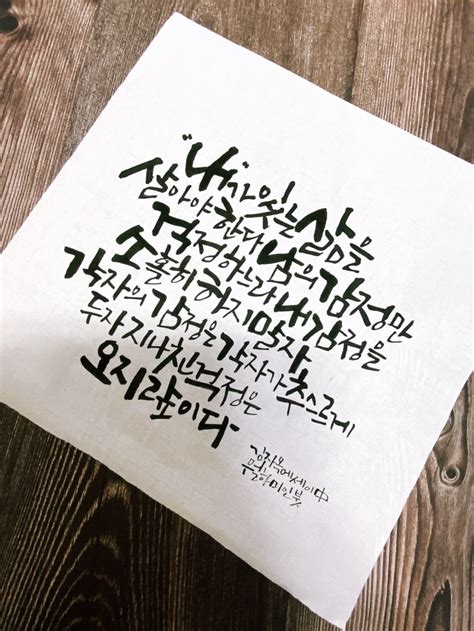 "내"가 있는 삶을
살아야 한다 남의 감정만
걱정하느라 내 감정을
소홀히 하지 말자
각자의 감정은 각자가 추스르게
두자 지나친 걱정은
오지랖이다
김지옥 에세이 中